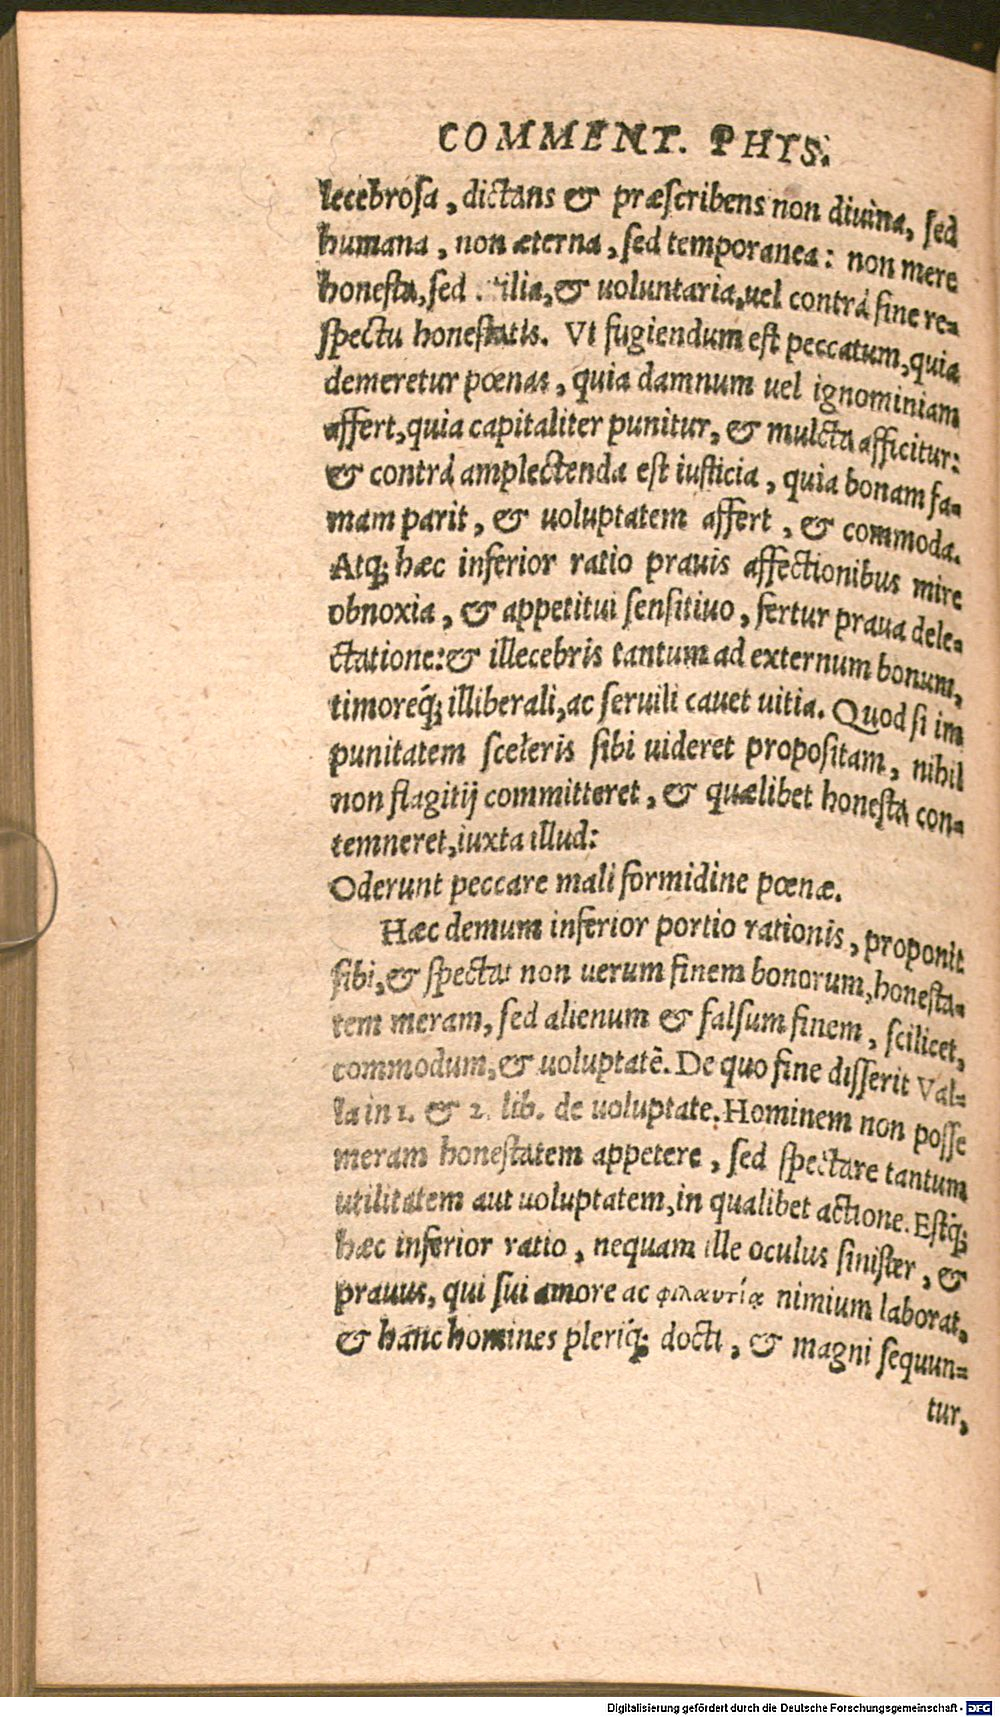 COMMENT. PHYS.
lecebrosa, dictans & præscribens non diuina, sed
humana, non æterna, sed temporanea: non mere
honesta, sed & uoluntaria, uel contrà sine re-
spectu honestatis. Vt fugiendum est peccatum, quia
demeretur pœnas, quia damnum uel ignominiam
affert, quia capitaliter punitur, & mulcta afficitur:
& contrà amplectenda est iusticia, quia bonam fa-
mam parit, & uoluptatem affert, & commoda.
Atq; hæc inferior ratio prauis affectionibus mire
obnoxia, & appetitui sensitiuo, fertur praua dele-
ctatione: & illecebris tantum ad externum bonum,
timoreq́; illiberali, ac seruili cauet uitia. Quod si im
punitatem sceleris sibi uideret propositam, nihil
non flagitij committeret, & quælibet honesta con-
temneret, iuxta illud:
Oderunt peccare mali formidine pœnæ.
Hæc demum inferior portio rationis, proponit
sibi, & spectat non uerum finem bonorum, honesta-
tem meram, sed alienum & falsum finem, scilicet,
commodum, & uoluptatē. De quo fine disserit Val-
la in 1. & 2. lib. de uoluptate. Hominem non posse
meram honestatem appetere, sed spectare tantum
utilitatem aut uoluptatem, in qualibet actione. Estq́;
hæc inferior ratio, nequam ille oculus sinister, &
prauus, qui sui amore ac φιλαυτίᾳ nimium laborat,
& hanc homines pleriq́; docti, & magni sequun-
tur,
Digitalisierung gefördert durch die Deutsche Forschungsgemeinschaft - DFG